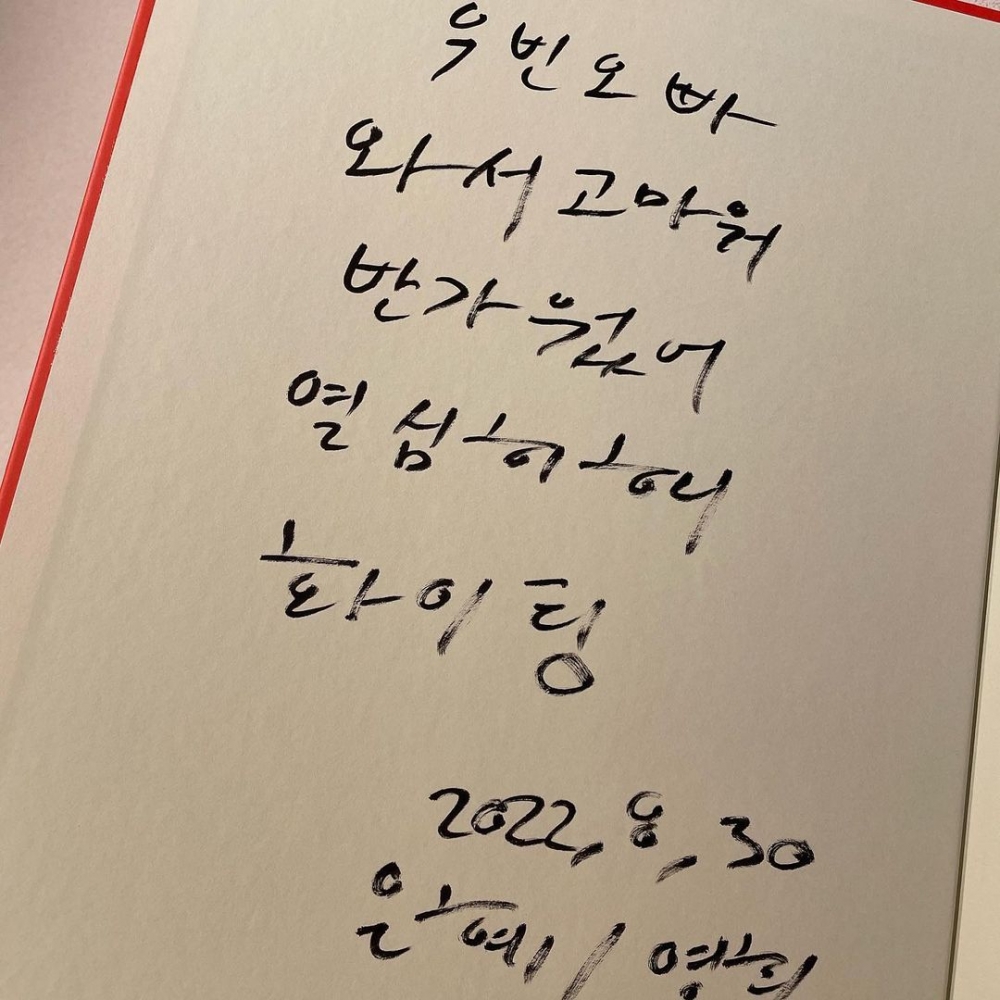 우빈오빠
와서 고마워
반가웠어
열심히해
화이팅
2022, 8, 30
은혜 / 영희